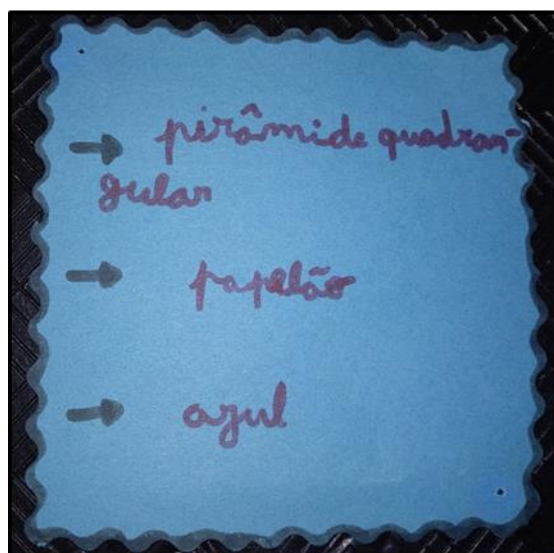 → pirâmide quadran-
gular
→ papelão
→ azul